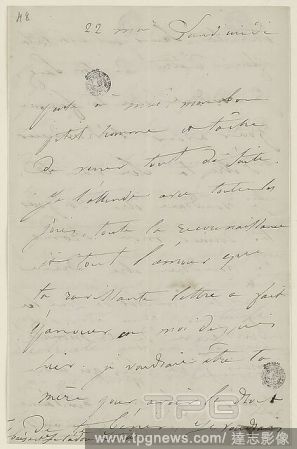 84
22 mars Samedi midi
à moi, mon bon
petit homme et tâche
de venir tout de suite.
Je t'attends avec toutes les
joies, toute la reconnaissance
et tout l'amour que
ta ravissante lettre a fait
en moi depuis
hier. je voudrais être ta
mère pour avoir le droit
De te
TPG
www.tpgnews.com / 達志影像